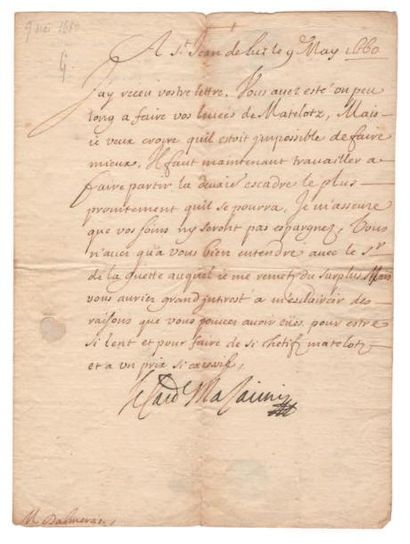 9 mai 1660
A St Jean de Luz le 9 May 1660
J'ay receu vostre lettre. Vous avez esté un peu
long a faire vos levées de Matelotz, Mais
ie veux croire quil estoit impossible de faire
mieux. Il faut maintenant travailler a
faire partir la escadre le plus
promtement quil se pourra. Je m'asseure
que vos soins ny seront pas espargnez, Vous
n'avez qu'à vous bien entendre avec le Sr
de la Guette auquel ie me remetz du surplus Mais
vous auriez grand intrest a m'esclaircir des
raisons que vous pouvez avoir eües pour estre
si lent et pour faire de si chetifz matelotz
et a un prix si excessif,
le Card Mazarini
M Dalmeras